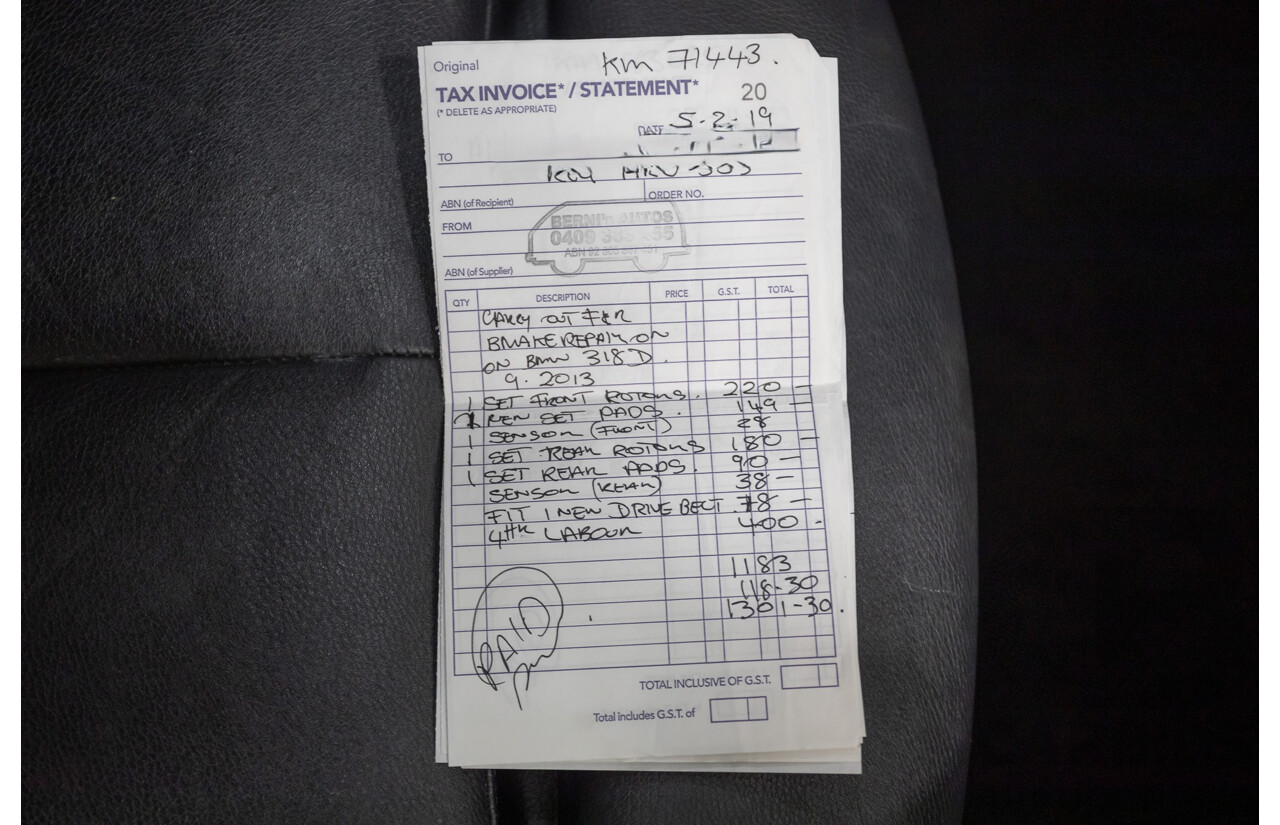 Original
km 71443.
TAX INVOICE* / STATEMENT*
(* DELETE AS APPROPRIATE)
20
DATE 5-2-19
TO
ABN (of Recipient)
ORDER NO.
FROM
BERNI'S AUTOS
0409
ABN 92
ABN (of Supplier)
QTY DESCRIPTION PRICE G.S.T. TOTAL
CARRY OUT F&R
BRAKE REPAIR ON
ON BMW 318D.
9. 2013
1 SET FRONT ROTORS. 220 -
SET PADS. 149 -
1 SENSOR (FRONT) 28
1 SET REAR ROTORS 180 -
1 SET REAR PADS. 90 -
SENSOR (REAR) 38 -
FIT 1 NEW DRIVE BELT. 78 -
4HR LABOUR 400 -
1183
118-30
1301-30.
PAID
TOTAL INCLUSIVE OF G.S.T.
Total includes G.S.T. of